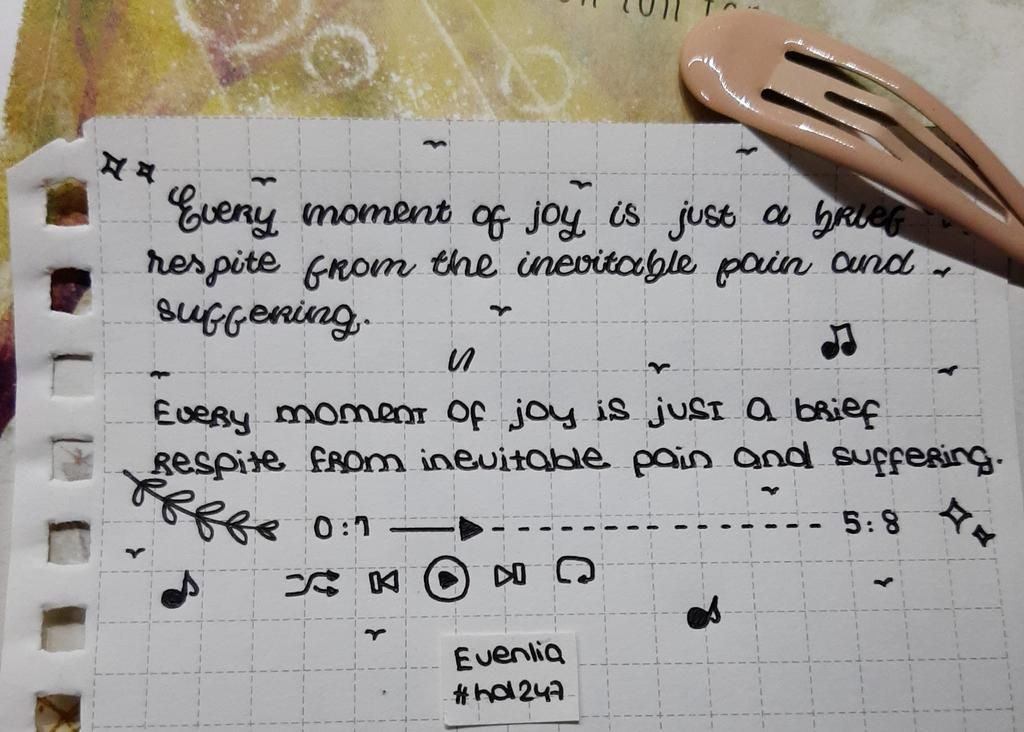 Every moment of joy is just a brief
respite from the inevitable pain and
suffering.
Every moment of joy is just a brief
respite from inevitable pain and suffering.
0:7 5:8
Evenlia
#hd247